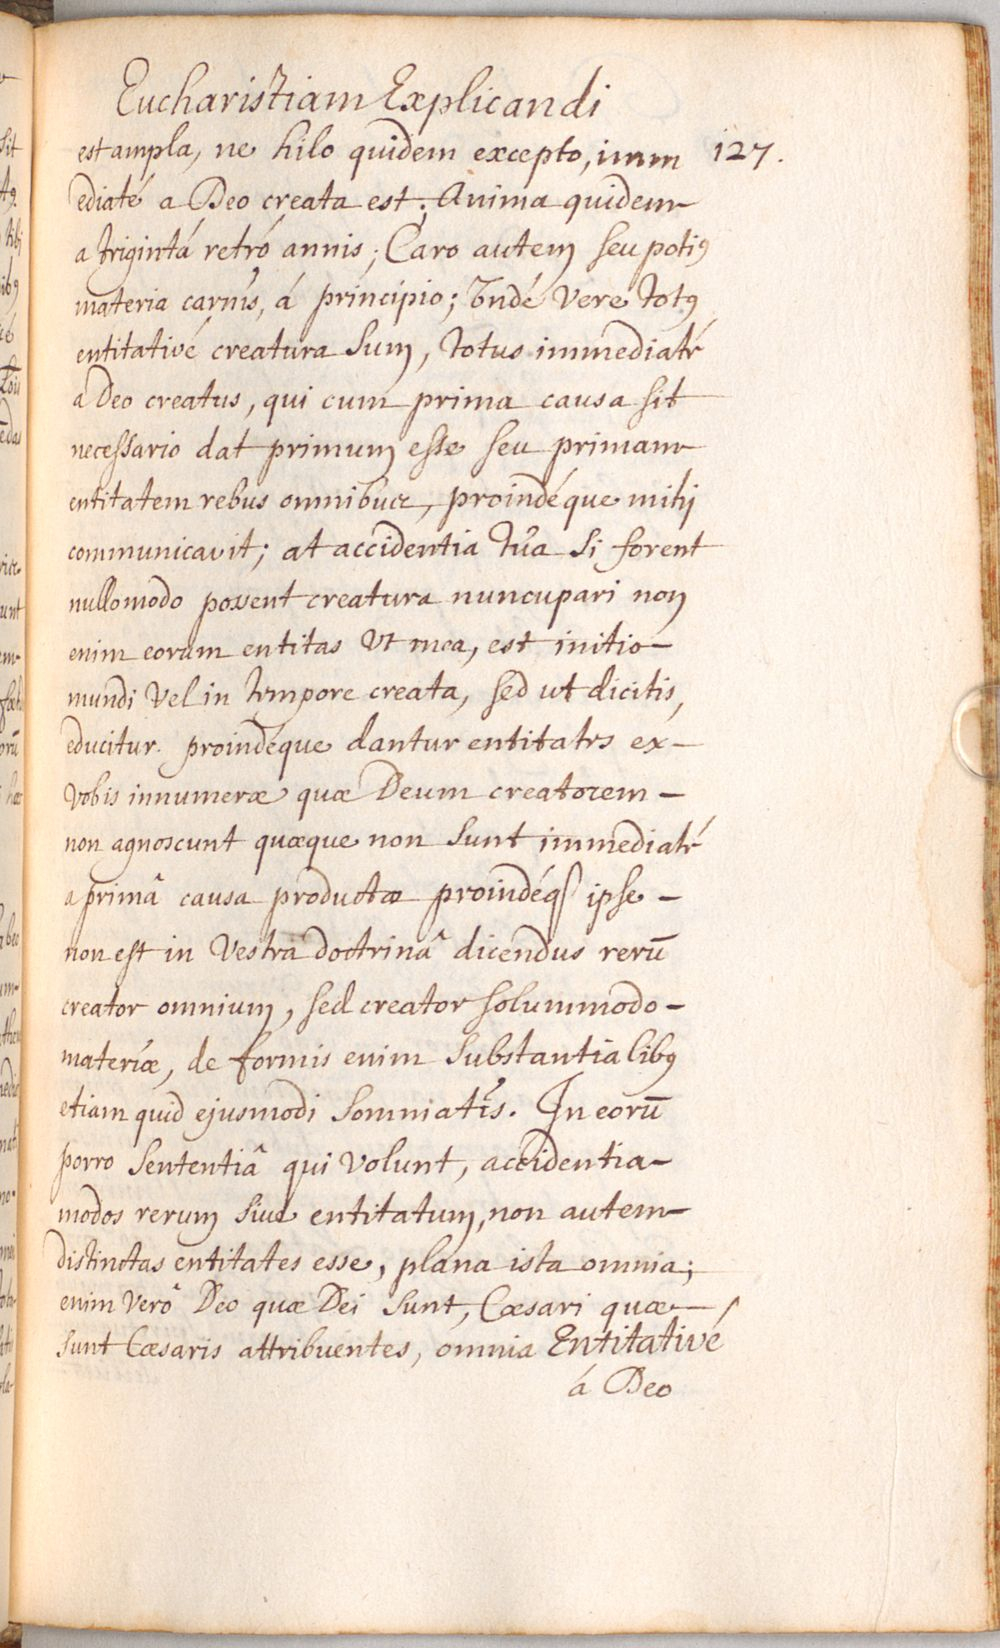 Eucharistiam Explicandi
est ampla, ne hilo quidem excepto, imm 127.
ediaté a Deo creata est; Anima quidem
a trigintá retró annis; Caro autem seu potiꝰ
materia carnis, á principio; Undé Vere totꝰ
entitativé creatura Sum, totus immediaté
a Deo creatus, qui cum prima causa sit
necessario dat primum esse seu primam
entitatem rebus omnibus, proindéque mihi
communicavit; at accidentia tua si forent
nullomodo possent creatura nuncupari non
enim eorum entitas Ut mea, est initio-
mundi Vel in tempore creata, sed ut dicitis,
educitur. proindeque dantur entitates ex-
Vobis innumeræ quæ Deum creatorem-
non agnoscunt quæque non sunt immediaté
a primâ causa productæ proindéqꝫ ipse-
non est in Vestra doctrinâ dicendus rerū
creator omnium, sed creator solummodo-
materiæ, de formis enim Substantialibꝰ
etiam quid ejusmodi Somniatis. In eorū
porro Sententiâ qui Volunt, accidentia-
modos rerum sive entitatum, non autem-
distinctas entitates esse, plana ista omnia;
enim Verô Deo quæ Dei sunt, Cæsari quæ-
sunt Cæsaris attribuentes, omnia Entitativé
á Deo